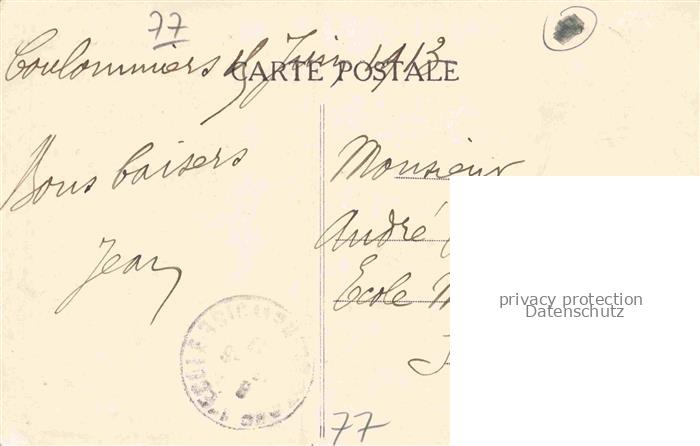 77
Coulommiers 15 Juin 1913
CARTE POSTALE
Bons baisers
Jean
Monsieur
André
Ecole
77
privacy protection
Datenschutz